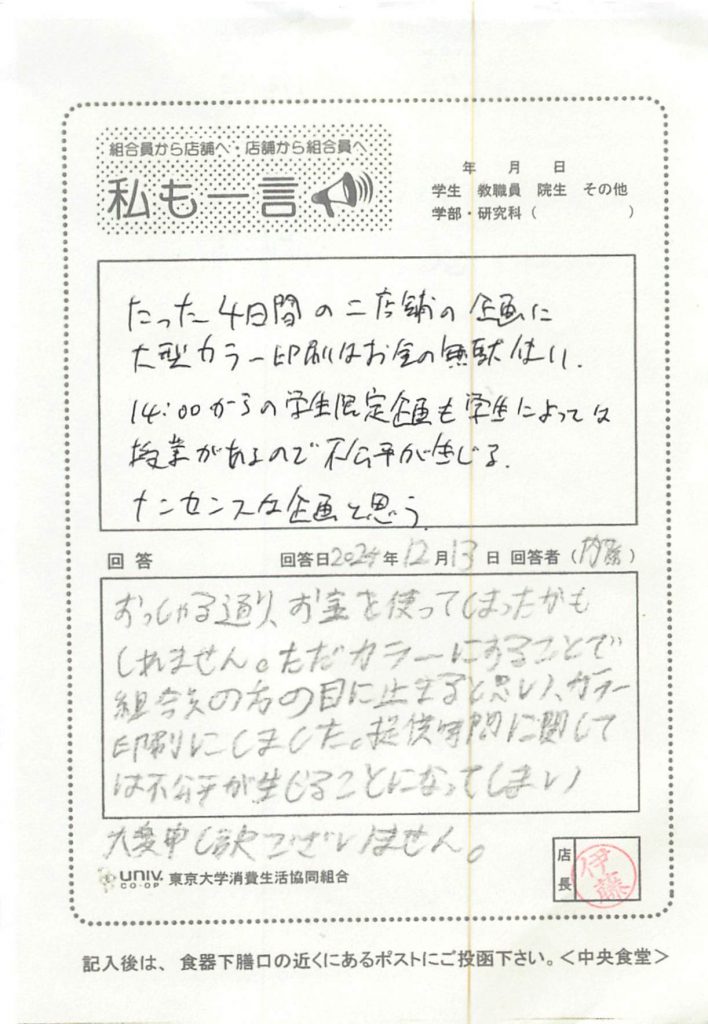 組合員から店舗へ・店舗から組合員へ
私も一言
年 月 日
学生 教職員 院生 その他
学部・研究科( )
たった4日間の二店舗の企画に
大型カラー印刷はお金の無駄使い.
14:00からの学生限定企画も学生によっては
授業があるので不公平が生じる.
ナンセンスな企画と思う.
回答 回答日2024年12月13日 回答者( )
おっしゃる通り、お金を使ってしまったかも
しれません。ただカラーにすることで
組合員の方の目に止まると思い、カラー
印刷にしました。提供時間に関して
は不公平が生じることになってしまい
大変申し訳ございません。
UNIV. CO-OP 東京大学消費生活協同組合
店長 伊藤
記入後は、食器下膳口の近くにあるポストにご投函下さい。<中央食堂>